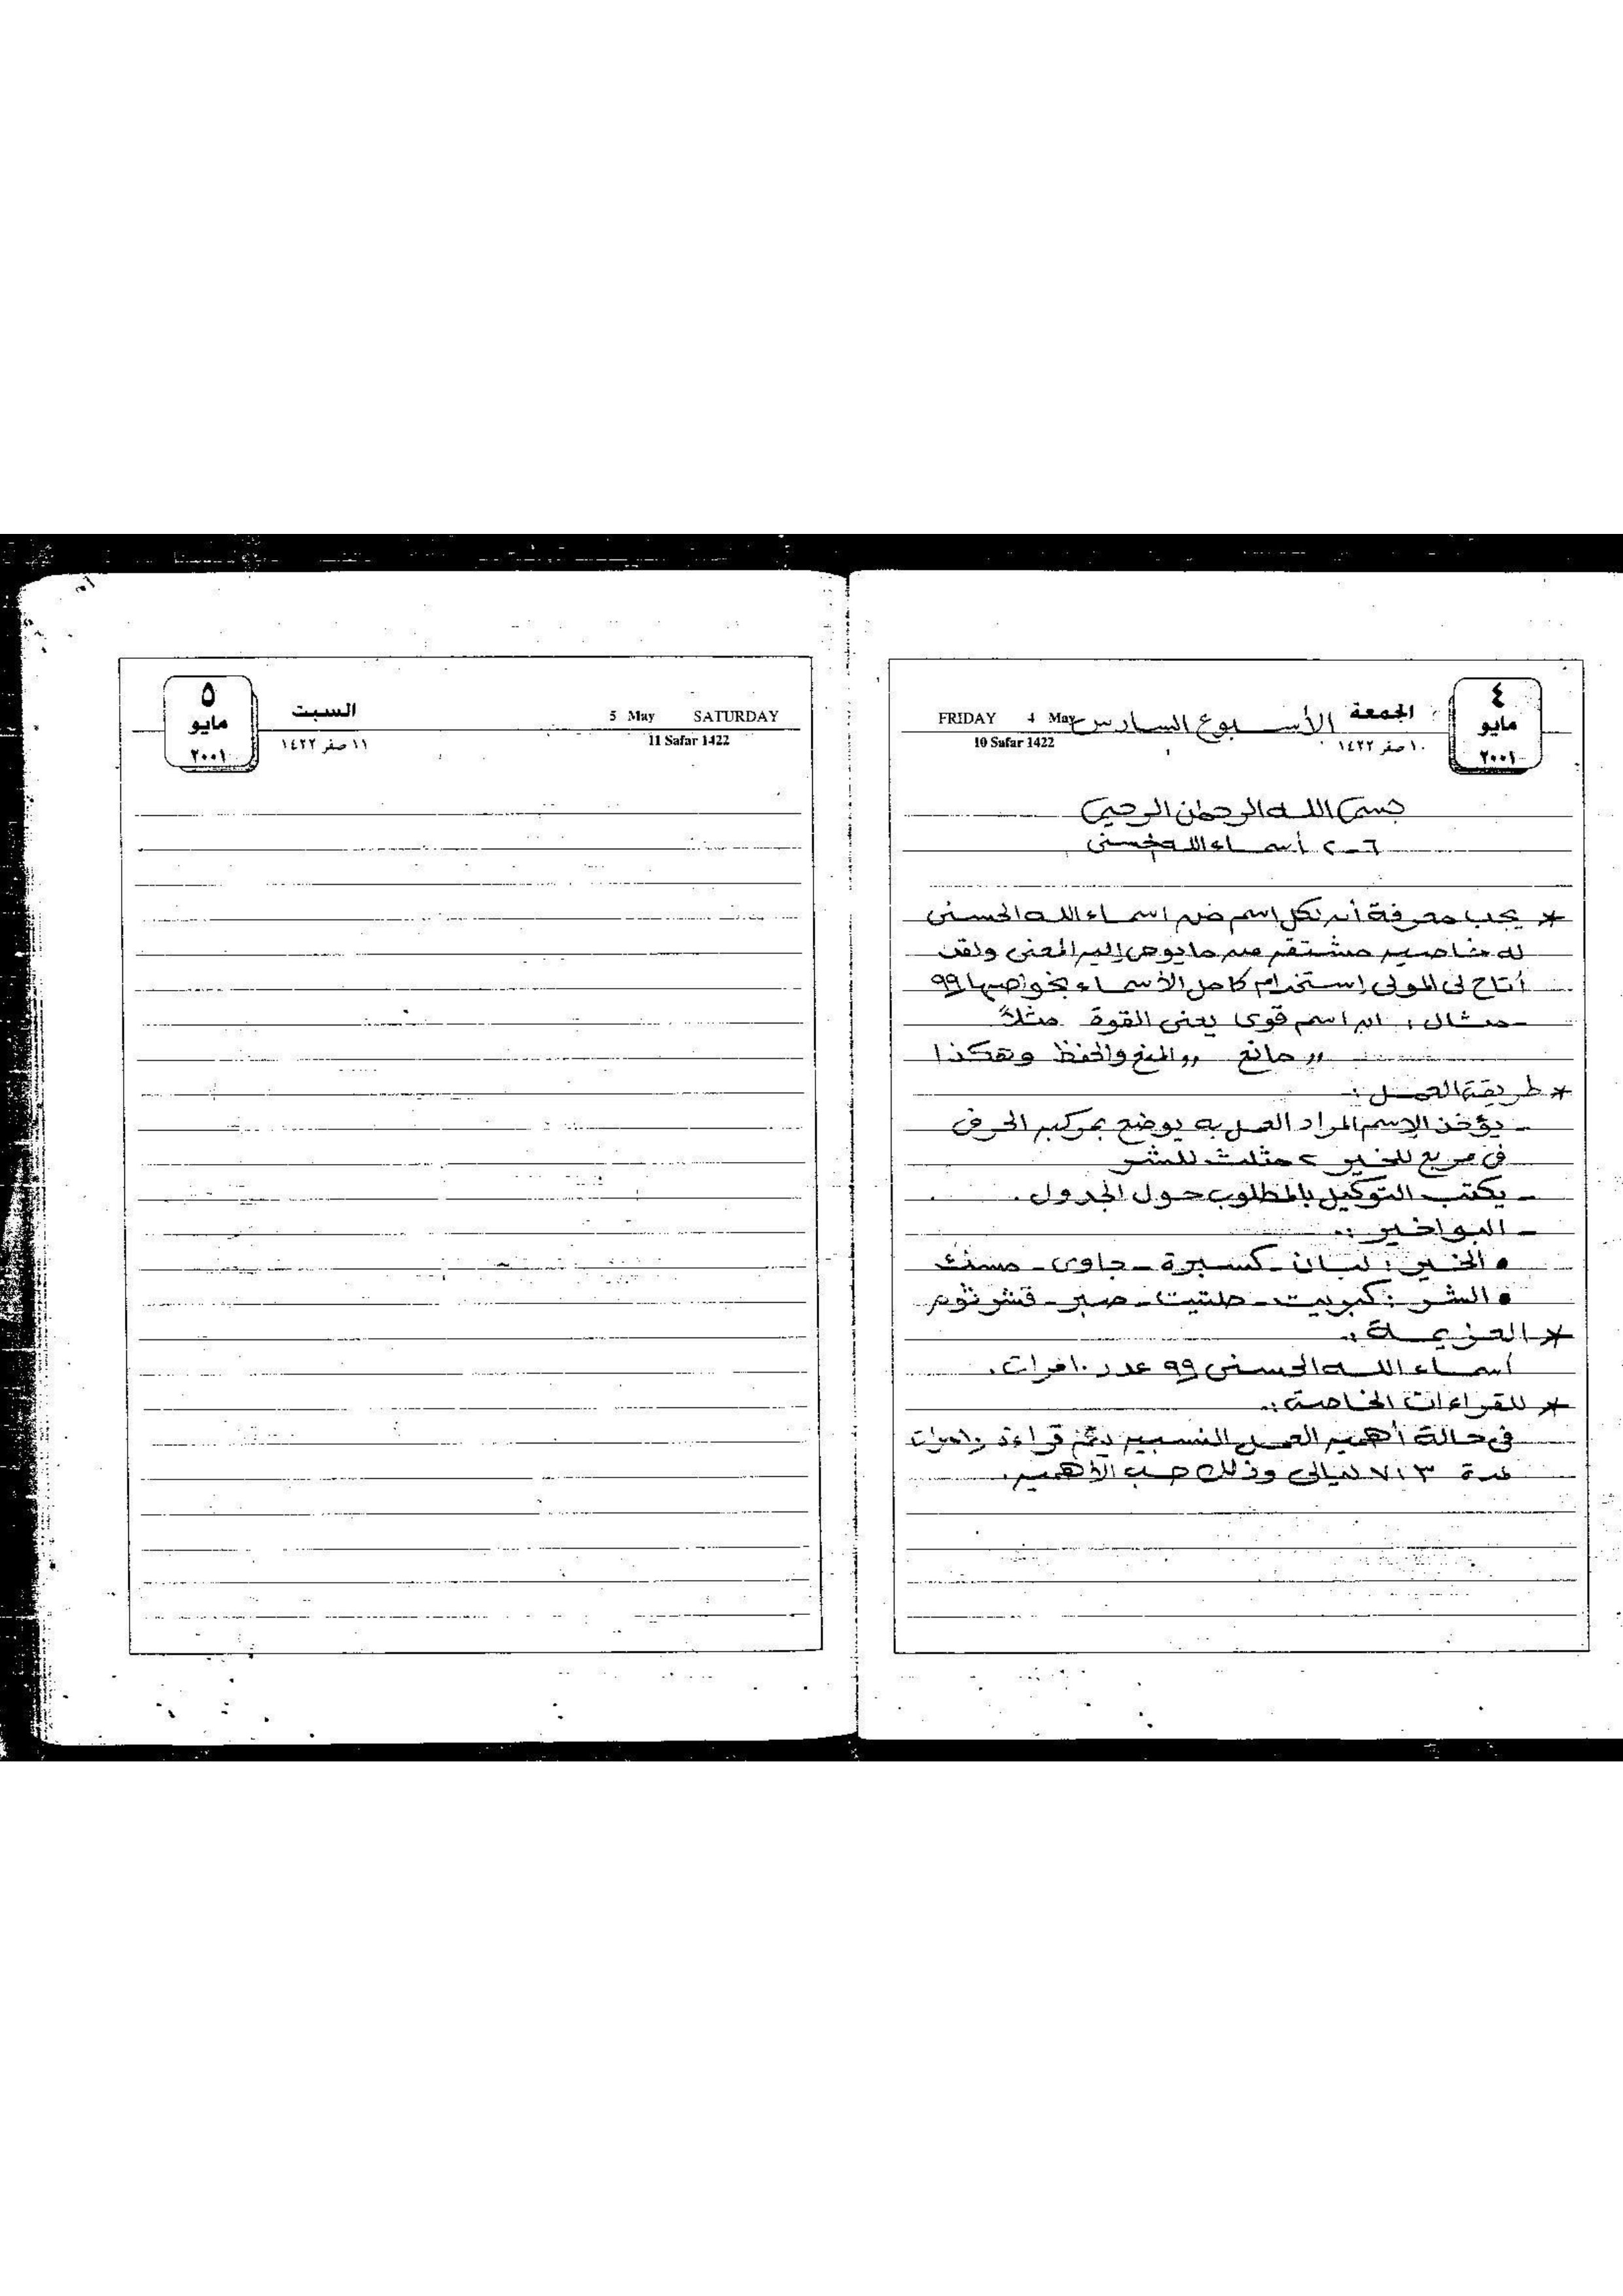 ٤
مايو
٢٠٠١
الجمعة
١٠ صفر ١٤٢٢
الأسبوع السادس
FRIDAY 4 May
10 Safar 1422
بسم الله الرحمن الرحيم
٦-٢ أسماء الله الحسنى
* يجب معرفة أن لكل اسم من اسماء الله الحسنى
له خاصيه مشتقه من ما يوصى إليه المعنى ولقد
أتاح لى المولى إستخدام كامل الأسماء بخواصها ٩٩
- مثال : ان اسم قوى يعنى القوة مثلاً
" مانع " المنع والحفظ وهكذا
* طريقة العمل :
- يؤخذ الإسم المراد العمل به يوضع بمركبه الحرفى
فى مربع للخير ، مثلث للشر
- يكتب التوكيل بالمطلوب حول الجدول .
- البواخير :
• الخير : لبان - كسبرة - جاوى - مستك
• الشر : كبريت - حلتيت - صبر - قشر ثوم
* العزيمة :
أسماء الله الحسنى ٩٩ عدد ١٠ مرات .
* للقراءات الخاصة :
فى حالة أهميه العمل النسبيه يتم قراءة ١٠ مرات
لمدة ٧،٣ ليالى وذلك حسب الأهميه .
٥
مايو
٢٠٠١
السبت
١١ صفر ١٤٢٢
5 May SATURDAY
11 Safar 1422